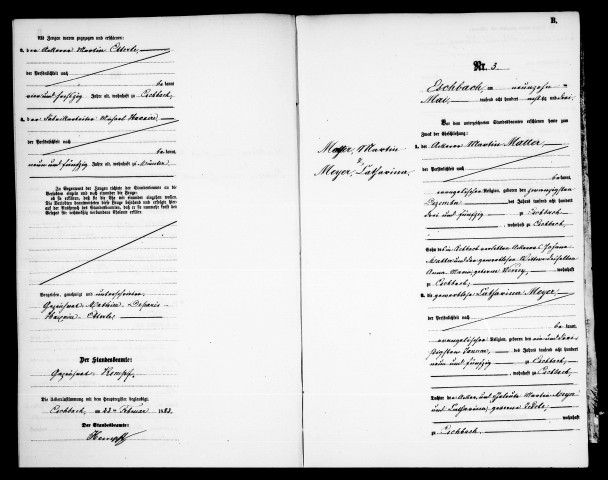 Als Zeugen waren zugezogen und erschienen:
3. der Ackerer Martin Etterle
der Persönlichkeit nach
be kannt
Jahre alt, wohnhaft zu Eschbach
4. der
der Persönlichkeit nach
be kannt
neun und fünfzig Jahre alt, wohnhaft zu Münster
In Gegenwart der Zeugen richtete der Standesbeamte an die
Verlobten einzeln und nach einander die Frage:
ob sie erklären, daß sie die Ehe mit einander eingehen wollen.
Die Verlobten beantworteten diese Frage bejahend und erfolgte hierauf
der Ausspruch des Standesbeamten, daß er sie nunmehr kraft des
Gesetzes für rechtmäßig verbundene Eheleute erkläre.
Vorgelesen, genehmigt und unterschrieben
Gezeichnet
Der Standesbeamte:
Gezeichnet Kempf
Die Uebereinstimmung mit dem Hauptregister beglaubigt
Eschbach, am 23ten Februar 1883.
Der Standesbeamte:
Kempf
B.
Nr. 3.
Eschbach, am neunzehn
Mai, tausend acht hundert achtzig und drei.
Vor dem unterzeichneten Standesbeamten erschienen heute zum
Zweck der Eheschließung:
1. der Ackerer Martin Matter
der Persönlichkeit nach
be kannt,
evangelischer Religion, geboren den zwanzigsten
Dezember des Jahres tausend acht hundert
drei und fünfzig zu Eschbach
, wohnhaft zu Eschbach,
Sohn des in Eschbach verlebten Ackerers Johann
Matter und der gewerblosen Wittwe desselben
Anna Maria, geborene wohnhaft
zu Eschbach
2. die gewerblose Catharina Meyer
der Persönlichkeit nach
be kannt,
evangelischer Religion, geboren den ein und drei-
ßigsten Januar des Jahres tausend acht hundert
neun und fünfzig zu Eschbach
, wohnhaft zu Eschbach,
Tochter der Ackerer und Eheleute Martin Meyer
und Catharina, geborene wohnhaft
zu Eschbach
Martin
&
Meyer, Catharina